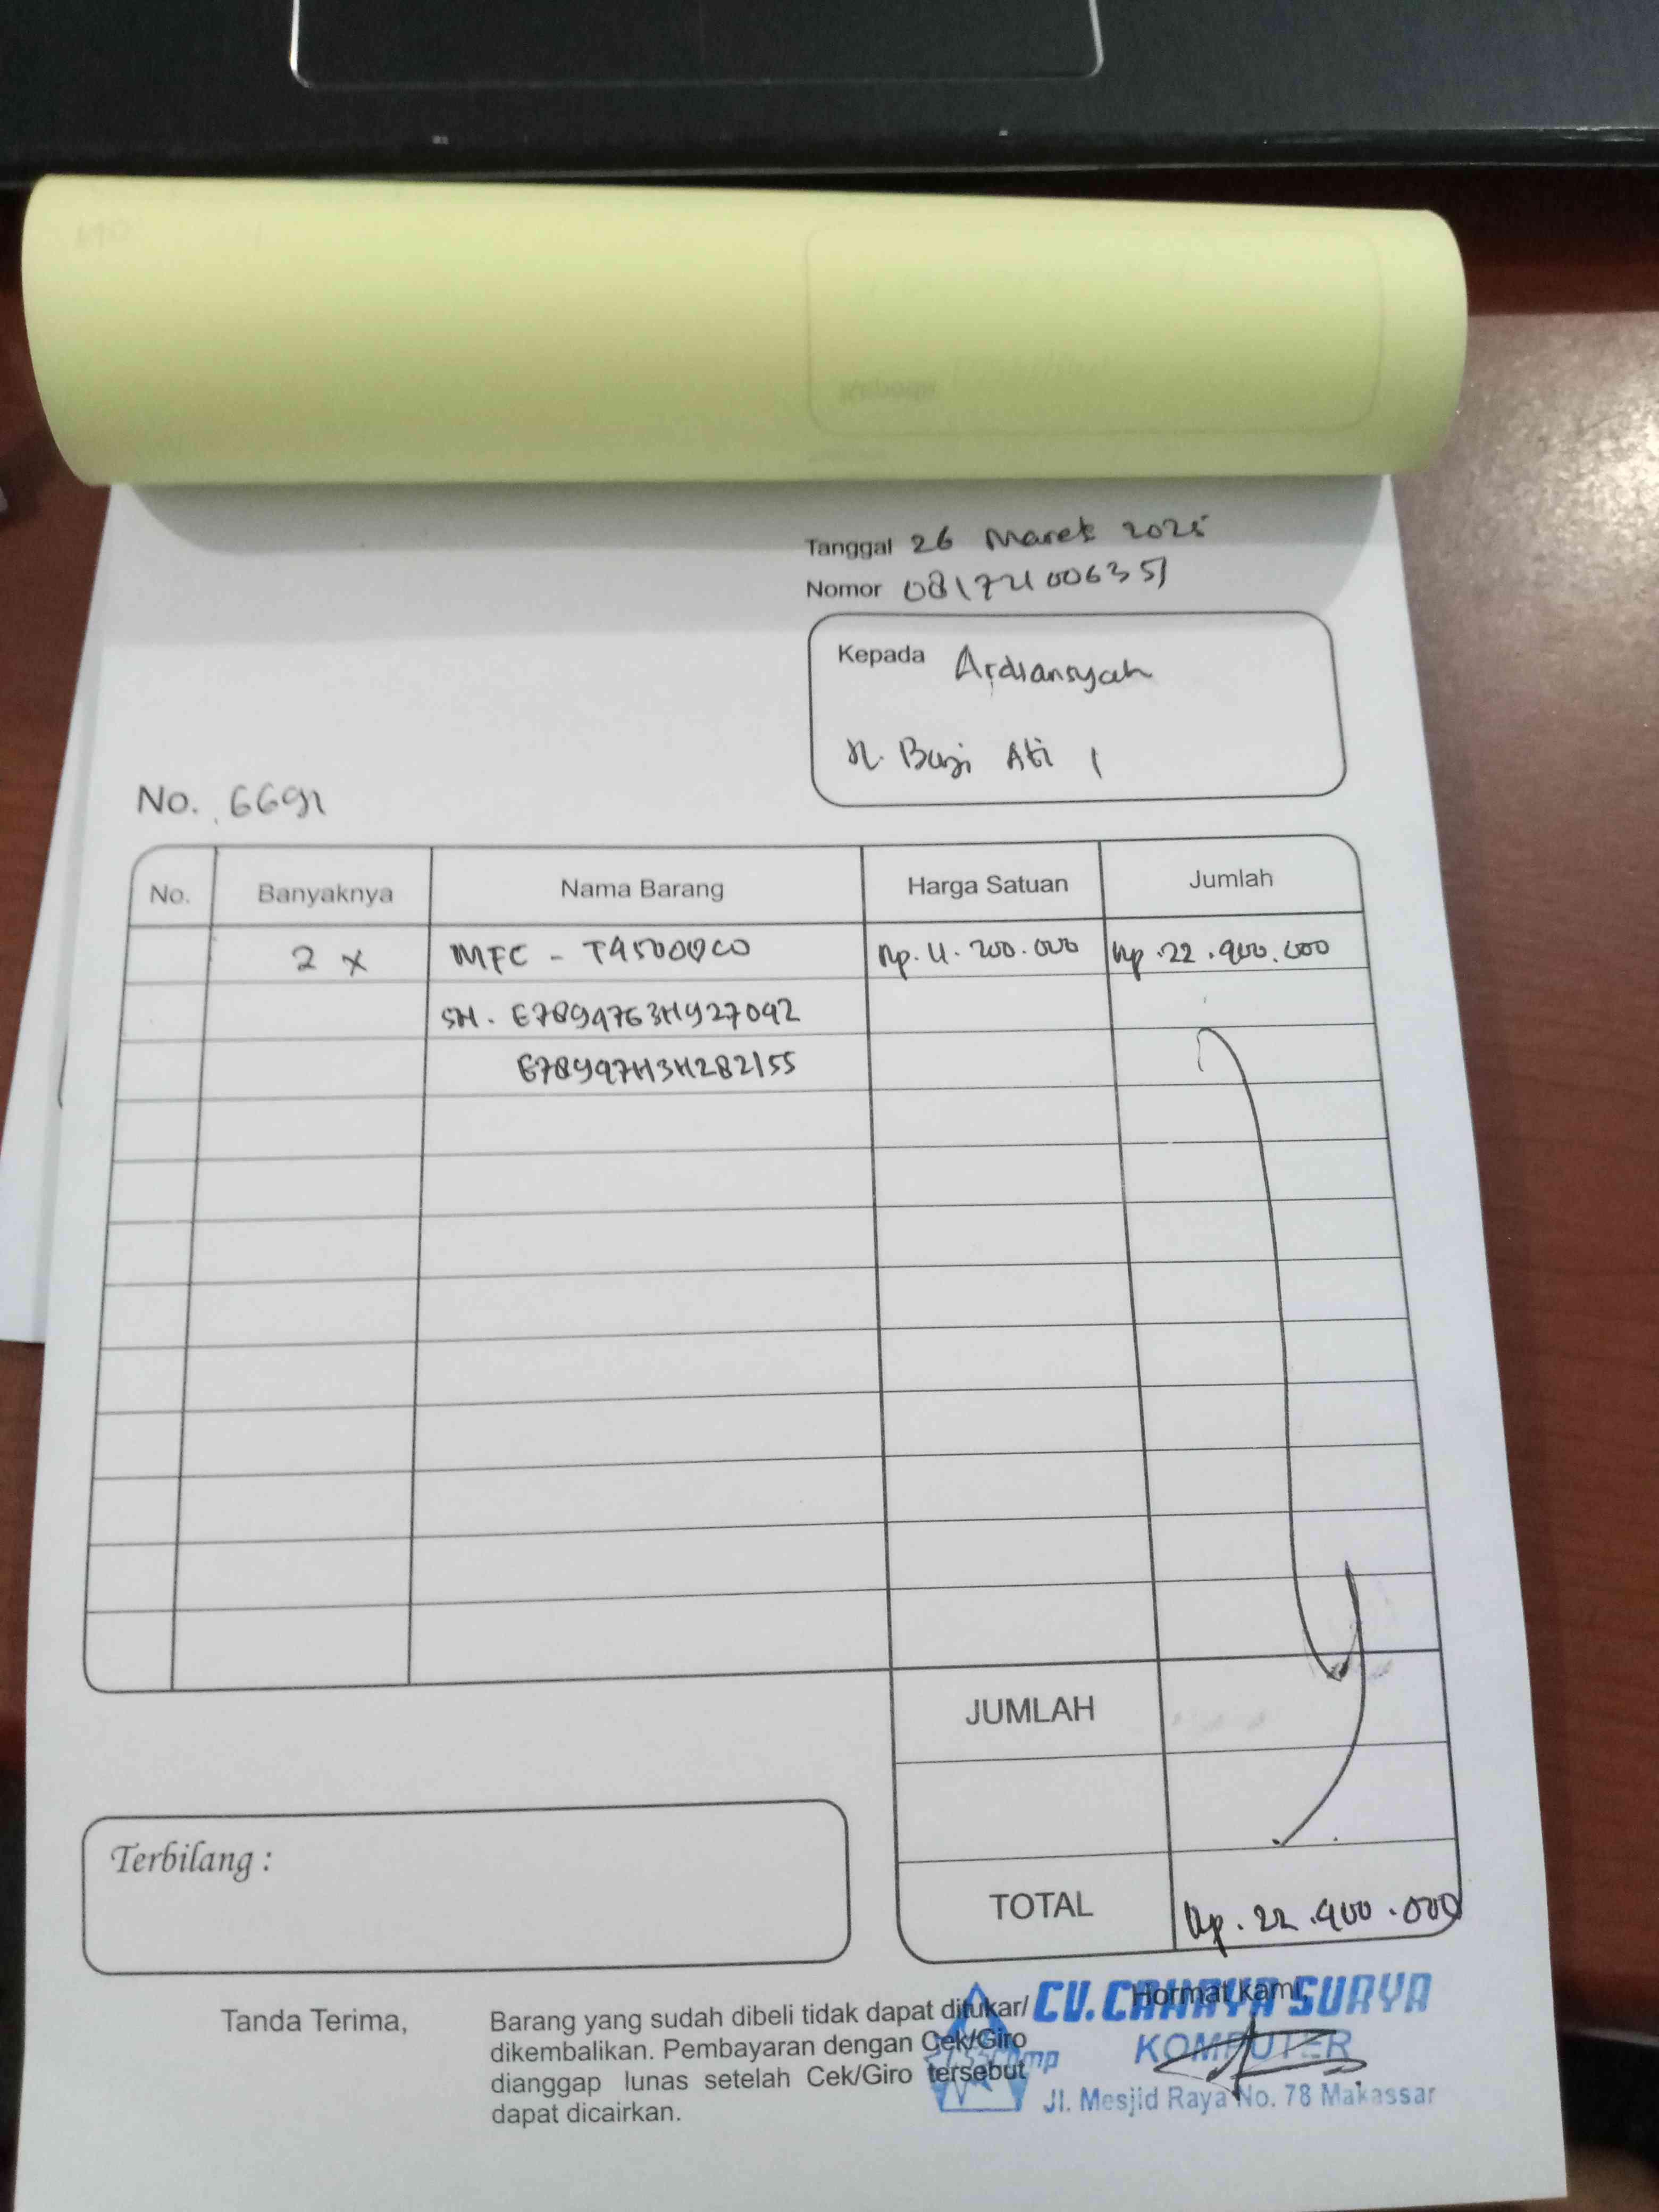 Tanggal 26 Maret 2025
Nomor
Kepada Ardiansyah
Jl. Baji Ati 1
No. 6691
No. Banyaknya Nama Barang Harga Satuan Jumlah
2 x MFC - T4500DW Rp. 11.200.000 Rp. 22.400.000
SN.
JUMLAH
Terbilang :
TOTAL Rp. 22.400.000
Tanda Terima,
Barang yang sudah dibeli tidak dapat ditukar/
dikembalikan. Pembayaran dengan Cek/Giro
dianggap lunas setelah Cek/Giro tersebut
dapat dicairkan.
Hormat kami,
CV. CAHAYA SURYA
KOMPUTER
Jl. Mesjid Raya No. 78 Makassar